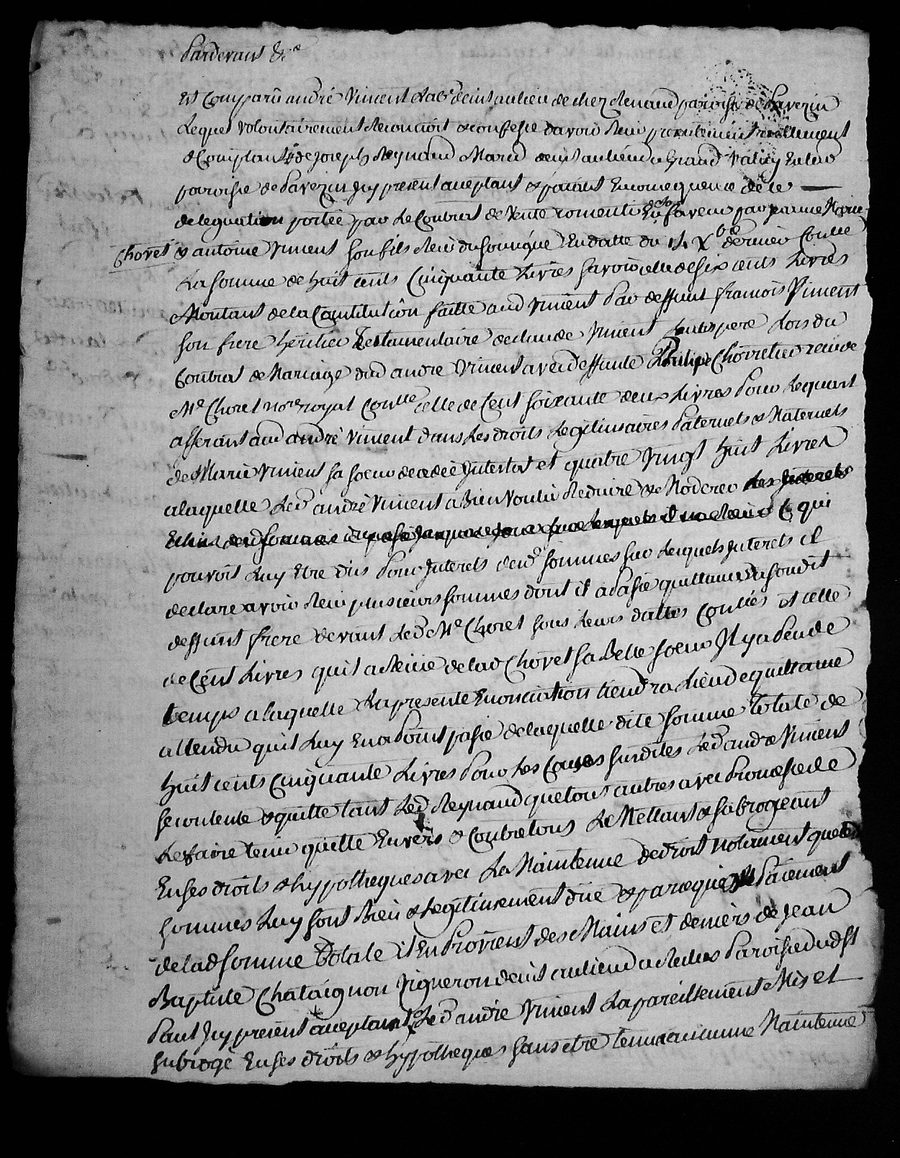 Pardevant &c
Est Comparû andré Vincent Lab.r demt au lieu de chez Renaud paroisse de Pavezin
Lequel volontairement Reconnoit & confesse d'avoir Reçu presentement réellement
& Comptant de Joseph Reynaud Mard demt au lieu du Grand Valuy Enlad
paroisse de Pavezin Icy present aceptant & païant En consequence de le
delegation portée par Le Contrat de Vente consenti En sa faveur par jeanne Marie
Choret & antoine Vincent son fils Reçu du soussigné En datte du 14 Xbre dernier Coullé
La somme de huit cents Cinquante Livres savoir celle de six cents Livres
Montant de la Constitution faitte aud Vincent Par deffunt francois Vincent
son frere heritier testamentaire de claude Vincent leur pere Lors du
Contrat de Mariage dud andré Vincent avec deffunte Choret reçu de
Me Choret nore royal Conllé celle de Cent soixante deux Livres Pour Le quart
afferant aud andré Vincent dans Les droits Legitimaires Paternels & Maternels
de Marie Vincent sa soeur decedée Intestat et quatre Vingt huit Livres
a laquelle Led andré Vincent a Bien Voulu Reduire & Moderer Les Interets
Ce qui
pouvoit Luy Etre dûs Pour Interets desd sommes sur Lesquels Interets il
declare avoir Reçu plusieurs sommes dont il a Passé quittance a sondit
deffunt frere devant Led Me Choret sous Leurs dattes Conllées et celle
de Cent Livres qu'il a Reçüe de lad Choret sa Belle soeur Il y a Peu de
temps a laquelle La presente Enonciation tiendra Lieu de quittance
attendu qu'il Luy En a Point passé de laquelle dite somme totale de
huit cents Cinquante Livres Pour Les Causes susdites Led andre Vincent
se contente & quitte tant Led Reynaud que tous autres avec Promesse de
Le faire tenir quitte Envers & Contre tous Le Mettant & subrogeant
En ses droits & hypotheques avec La Maintenue de droit notament que
sommes Luy sont Bien & Legitimement düe & parce que Paiement
de lad somme totale il En Provient des Mains et deniers de Jean
Baptiste Chataignon Vigneron demt au lieu Paroisse dudt St
Paul Icy present aceptant Led andré Vincent La pareillement Mis et
subrogé En ses droits & hypotheques sans etre tenu a aucune Maintenue